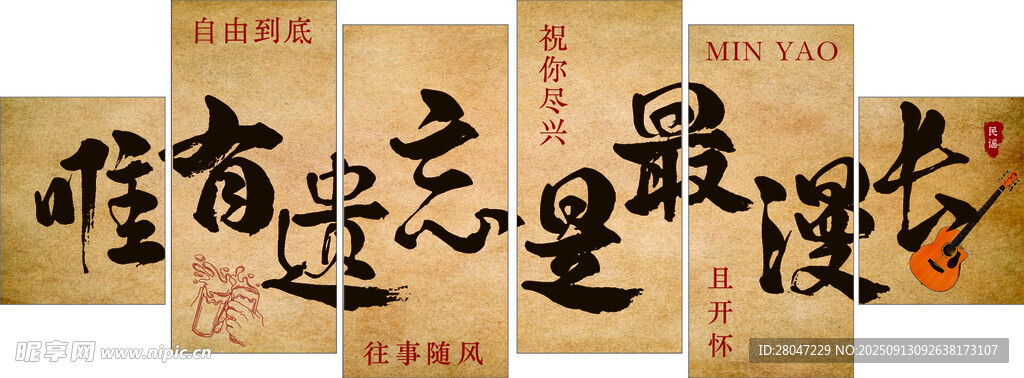 自由到底
祝你尽兴
MIN YAO
民谣
唯有遗忘是最漫长
往事随风
且开怀
昵享网 www.nipic.cn
ID:28047229 NO:20250913092638173107